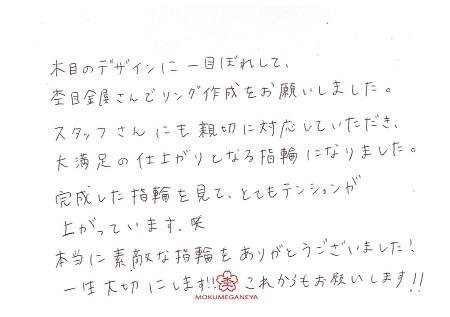 木目のデザインに一目ぼれして、
杢目金屋さんでリング作成をお願いしました。
スタッフさんにも親切に対応していただき、
大満足の仕上がりとなる指輪になりました。
完成した指輪を見て、とてもテンションが
上がっています.咲
本当に素敵な指輪をありがとうございました!
一生大切にします!! 杢 これからもお願いします!!
MOKUMEGANEYA